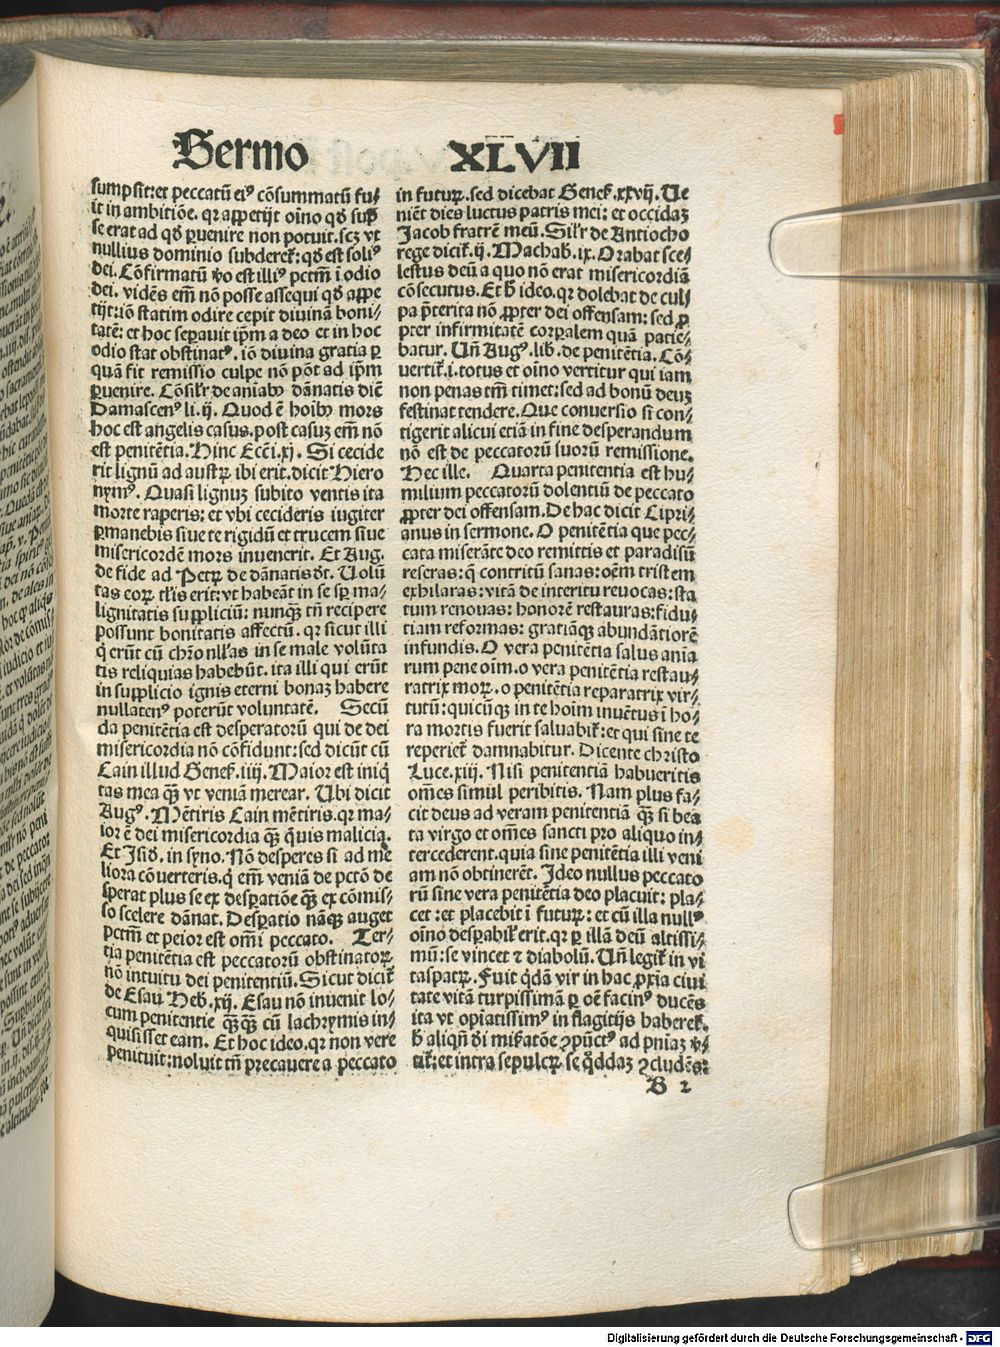 Sermo XLVII
sumpsit: et peccatū ei⁹ cōsummatū fu⸗
it in ambitiōe. qꝛ appetijt oīno qď sup̄
se erat ad qď ꝑuenire non potuit. scꝫ vt
nullius dominio subderet᷑: qď est soli⁹
dei. Cōfirmatū ꝟo est illi⁹ pctm̄ ī odio
dei. vidēs em̄ nō posse assequi qď appe
tijt: iō statim odire cepit diuinā boni⸗
tatē: et hoc seꝑauit ip̄m a deo et in hoc
odio stat obstinat⁹. iō diuina gratia ꝑ
quā fit remissio culpe nō pōt ad ip̄m
ꝑuenire. Cōsil'r de aniabꝫ dānatis dič
Damascen⁹ li. ij. Quod ē hoībꝫ mors
hoc est angelis casus. post casuꝫ em̄ nō
est penitētia. Hinc Ecc̄i. xj. Si cecide
rit lignū ad austꝝ ibi erit. dicit Hiero
nym⁹. Quasi lignuꝫ subito ventis ita
morte raperis: et vbi cecideris iugiter
ꝑmanebis siue te rigidū et trucem siue
misericordē mors inuenerit. Et Aug.
de fide ad Petꝝ de dānatis dt̄. Uolū
tas coꝝ tl̄is erit: vt habeāt in se sꝑ ma⸗
lignitatis suppliciū: nunqꝫ tn̄ recipere
possunt bonitatis affectū. qꝛ sicut illi
q̇ erūt cū chr̄o nll'as in se male volūta
tis reliquias habebūt. ita illi qui erūt
in supplicio ignis eterni bonaꝫ habere
nullaten⁹ poterūt voluntatē. Secū
da penitētia est desperatorū qui de dei
misericordia nō cōfidunt: sed dicūt cū
Cain illud Genes̄. iiij. Maior est iniq̇
tas mea qꝫ̄ vt veniā merear. Ubi dicit
Aug⁹. Mētiris Cain mētiris. qꝛ ma⸗
ior ē dei misericordia qꝫ̄ q̇uis malicia.
Et Isid̄. in syno. Nō desperes si ad me
liora cōuerteris. q̇ em̄ veniā de pctō de
sperat plus se ex desꝑatiōe qꝫ̄ ex cōmis⸗
so scelere dānat. Desꝑatio nāqꝫ auget
pctm̄ et peior est omī peccato. Ter⸗
tia penitētia est peccatorū obstinatoꝝ
nō intuitu dei penitentiū. Sicut dicit᷑
de Esau Heb. xij. Esau nō inuenit lo⸗
cum penitentie qꝫ̄qꝫ̄ cū lachrymis in⸗
quisisset eam. Et hoc ideo, qꝛ non vere
penituit: noluit tn̄ precauere a peccato
in futuꝝ. sed dicebat Genes̄. xxvij. Ue
niēt dies luctus patris mei: et occidaꝫ
Jacob fratrē meū. Sil'r de Antiocho
rege dicit᷑. ij. Machab. ix. Orabat sce⸗
lestus deū a quo nō erat misericordiā
cōsecutus. Et h̄ ideo. qꝛ dolebat de cul⸗
pa p̄terita nō ꝓpter dei offensam: sed ꝓ
pter infirmitatē corꝑalem quā patie⸗
batur. Un̄ Aug⁹. lib. de penitētia. Cō⸗
uertit᷑. i. totus et oīno vertitur qui iam
non penas tm̄ timet: sed ad bonū deuꝫ
festinat tendere. Que conuersio si con⸗
tigerit alicui etiā in fine desperandum
nō est de peccatorū suorū remissione.
Hec ille. Quarta penitentia est hu⸗
milium peccatorū dolentiū de peccato
ꝓpter dei offensam. De hac dicit Cipri⸗
anus in sermone. O penitētia que pec⸗
cata miserāte deo remittis et paradisū
reseras: q̄ contritū sanas: oēm tristem
exhilaras: vitā de interitu reuocas: sta
tum renouas: honorē restauras: fidu⸗
tiam reformas: gratiāqꝫ abundātiorē
infundis. O vera penitētia salus anīa
rum pene oīm. o vera penitētia restau⸗
ratrix moꝝ. o penitētia reparatrix vir⸗
tutū: quicūqꝫ in te hoīm inuētus ī ho⸗
ra mortis fuerit saluabit᷑: et qui sine te
reperiet᷑ damnabitur. Dicente christo
Luce. xiij. Nisi penitentiā habueritis
om̄es simul peribitis. Nam plus fa⸗
cit deus ad veram penitentiā qꝫ̄ si bea
ta virgo et om̄es sancti pro aliquo in⸗
tercederent. quia sine penitētia illi veni
am nō obtinerēt. Ideo nullus peccato
rū sine vera penitētia deo placuit: pla⸗
cet: et placebit ī futuꝝ: et cū illa null⁹
oīno desꝑabil' erit. qꝛ ꝑ illā deū altissi⸗
mū: se vincet ⁊ diabolū. Un̄ legit᷑ in vi
taspatꝝ. Fuit q̇dā vir in hac ꝓxīa ciui
tate vitā turpissimā ꝑ oē facin⁹ ducēs
ita vt opiatissim⁹ in flagitijs haberet᷑.
h̄ aliqn̄ dī mis̄atōe ꝯpūct⁹ ad pn̄iaꝫ ꝟ⸗
tit᷑: et intra sepulcꝝ se q̄ddaꝫ ꝯcludēs:
B 2
Digitalisierung gefördert durch die Deutsche Forschungsgemeinschaft - DFG